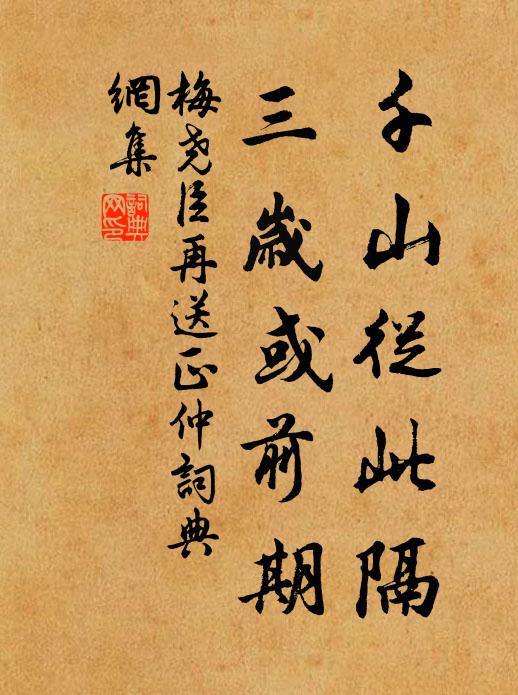 千山從此隔
三歲或前期
梅堯臣再送正仲詞典
網集
詞典網印